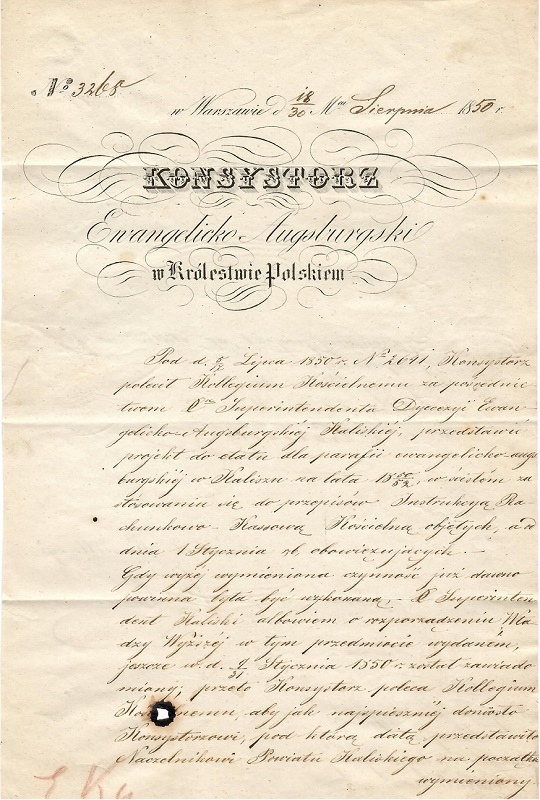 № 3265
w Warszawie d 18/30 Mca Sierpnia 1850 r
KONSYSTORZ
Ewangelicko Augsburgski
w Królestwie Polskiem
Pod d. 5/17 Lipca 1850 r. № 2041, Konsystorz
polecił Kollegium Kościelnemu za pośrednic
twem Superintendenta Dyecezyi Ewan-
gelicko-Augsburgskiéj Kaliskiéj, przedstawić
projekt do etatu dla parafii ewangelicko-augs
burgskiéj w Kaliszu na lata 18 50/52, w ścisłém za
stósowaniu się do przepisów Instrukcyą Ra
chunkowo-Kassową Kościelną objętych, a od
dnia 1 Stycznia rb obowiązujących. —
Gdy wyżéj wymieniona czynność już dawno
powinna była być wykonaną — Superinten
dent Kaliski albowiem o rozporządzeniu Wła
dzy Wyższéj w tym przedmiocie wydaném,
jeszcze w d. Stycznia 1850 r. został zawiado
miony; przeto Konsystorz poleca Kollegium
aby jak najspieszniéj doniosło
Konsystorzowi, pod którą datą przedstawiło
Naczelnikowi Powiatu Kaliskiego na początku
wymieniony